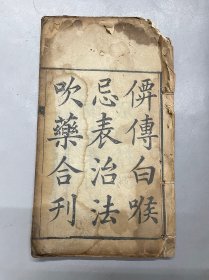 僲傳白喉
忌表治法
吹藥合刊